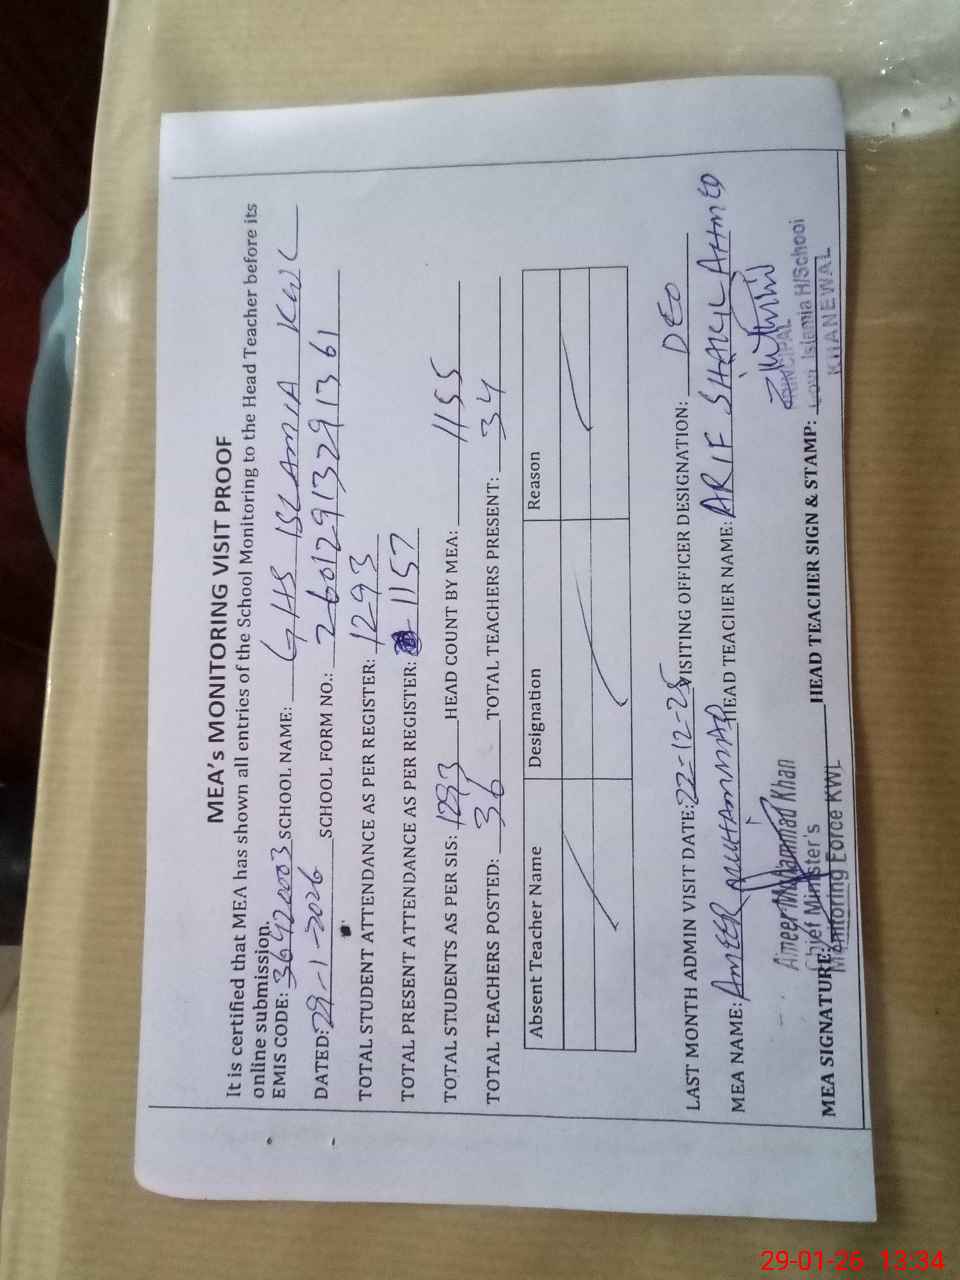 MEA's MONITORING VISIT PROOF
It is certified that MEA has shown all entries of the School Monitoring to the Head Teacher before its
online submission.
EMIS CODE: 36420003 SCHOOL NAME: GHS ISLAMIA KWL
DATED: 29-1-2026 SCHOOL FORM NO.: 2601291329 1361
TOTAL STUDENT ATTENDANCE AS PER REGISTER: 1293
TOTAL PRESENT ATTENDANCE AS PER REGISTER: 1157
TOTAL STUDENTS AS PER SIS: 1293 HEAD COUNT BY MEA: 1155
TOTAL TEACHERS POSTED: 36 TOTAL TEACHERS PRESENT: 34
Absent Teacher Name Designation Reason
LAST MONTH ADMIN VISIT DATE: 22-12-25 VISITING OFFICER DESIGNATION: DEO
MEA NAME: AMEER MUHAMMAD HEAD TEACHER NAME: ARIF SHAKIL AHMED
Ameer Muhammad Khan
Chief Minister's
Monitoring Force KWL
MEA SIGNATURE: HEAD TEACHER SIGN & STAMP:
PRINCIPAL
Govt Islamia H/School
KHANEWAL
29-01-26 13:34